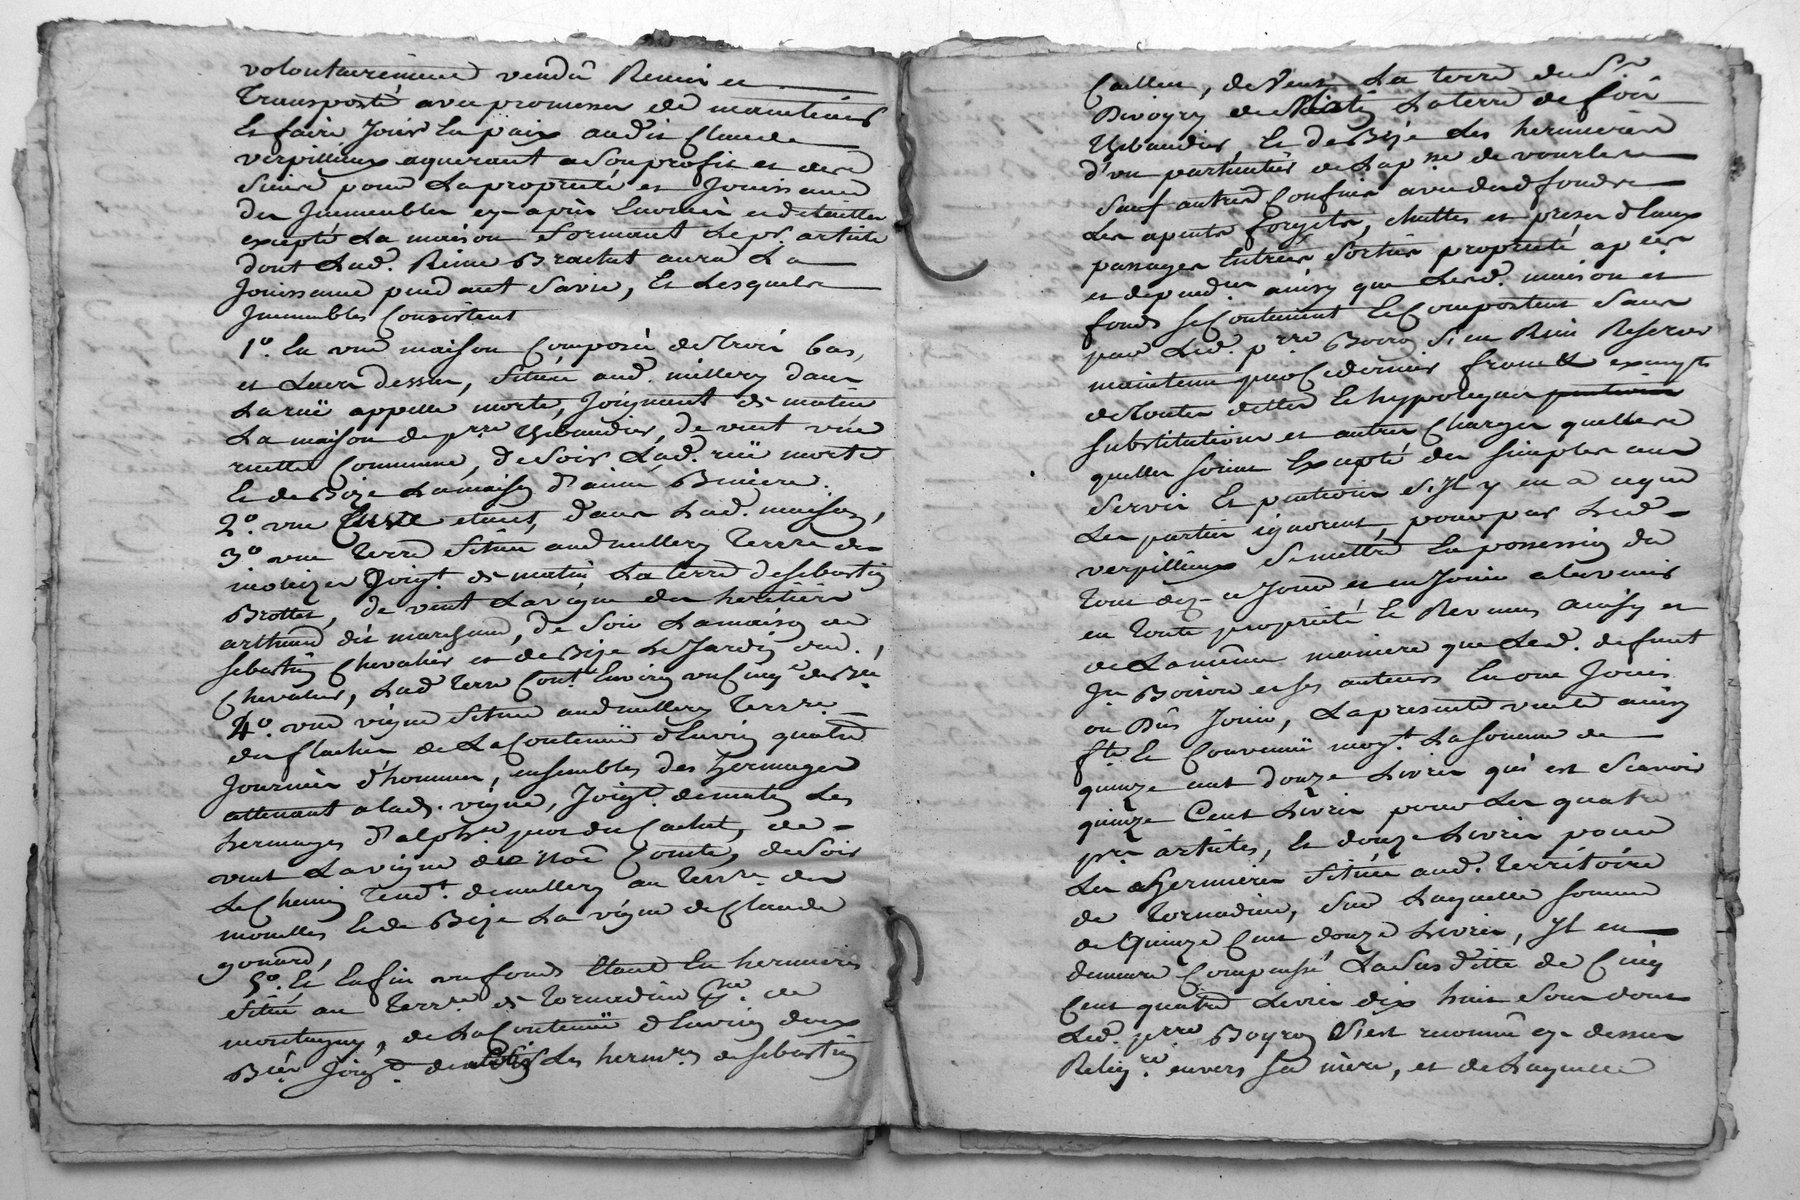 volontairement vendû Remis et
Transporté avec promesses de maintenir
Et faire Jouir En païx audit Claude
verpillieux aquerant a Son profit et des
Siens pour La propriété et Jouissance
des Jmmeubles cy-après Enoncés et détaillés
excepté La maison formant Le pr. article
dont Lad. Reine Brachet aura La
Jouissance pendant Sa vie, Et Lesquels
Jmmeubles Consistent
1º. En une maison Composée de trois bas,
et Leurs dessus, Située aud. millery dans
La ruë appellée morte, Joignant de matin
La maison de prre Thibaudier, de vent une
ruette Commune, de Soir Lad. ruë morte
Et de Bize La maison d'aimé
2º. une Cuve etant, dans Lad. maison,
3º. une Terre Située aud millery Terrre de
Joigt. de matin La terre de Sebastien
Brottet, de vent La vigne des heritiers
dit marchand, de Soir La maison de
Sebastien Chevalier et de Bize Le Jardin dud.,
Chevalier, Lad Terre Cont. Environ un Cinqe de
4º. une vigne Située aud millery Terrre
des flaches de La Contenuë d'Environ quatre
Journées d'hommes, ensembles des hermages
attenant a lad. vigne, Joigt. de matin Les
hermages d' de
vent La vigne de Noë Comte, de Soir
Le Chemin Tendt. de millery au Terrre des
mouilles Et de Bize La vigne de Claude
gonard,
5º. Et Enfin un fonds Etant En hermieres
Situé au Terrre de Tornadieu de
montagny, de La Contenuë d'Environ deux
Joigt. de Les hermres de Sebastien
de vent La terre du Sr.
de La terre de
Thibaudier, Et de Bize Les hermieres
d'un particulier de La psse de vourles
Sauf autres Confins avec desd fonds
Les apents forgets, chuttes et prises d'Eaux
passages Entrées Sorties propriété aprees
et dependces ainsy que Lesd. maison et
fonds Se Contiennent Et Comportent Sans
par Led. prre S'en Rien Reserver
maintenu francs et exempts
de toutes dettes Et hypoteques
Substitutions et autres Charges quelles
quelles Soient Excepté des Simples cens
Servis Et S'Jl y en a ceque
Les parties ignorent, pour par Led
verpillieux Se mettre En possession de
tout dez ce Jour et en Jouir a lavenir
en Toute propriété Et Revenus ainsy et
de La même maniere que Led. defunt
Jn et Ses auteurs En ont Joüis
ou Dûs Jouir, La presente vente ainsy
fte. Et Convenuë moyt. La Somme de
quinze cent douze Livres qui est Scavoir
quinze Cent Livres pour Les quatre
prs. articles, Et douze Livres pour
Les hermieres Situées aud. Territoire
de Tornadieu, Sur Laquelle Somme
de Quinze Cent douze Livres, Jl en
demeure Compensé La Susditte de Cinq
Cent quatre Livres dix huit Sous dont
Led. prre S'est reconnu cy-dessus
envers Sa mère, et de Laquelle